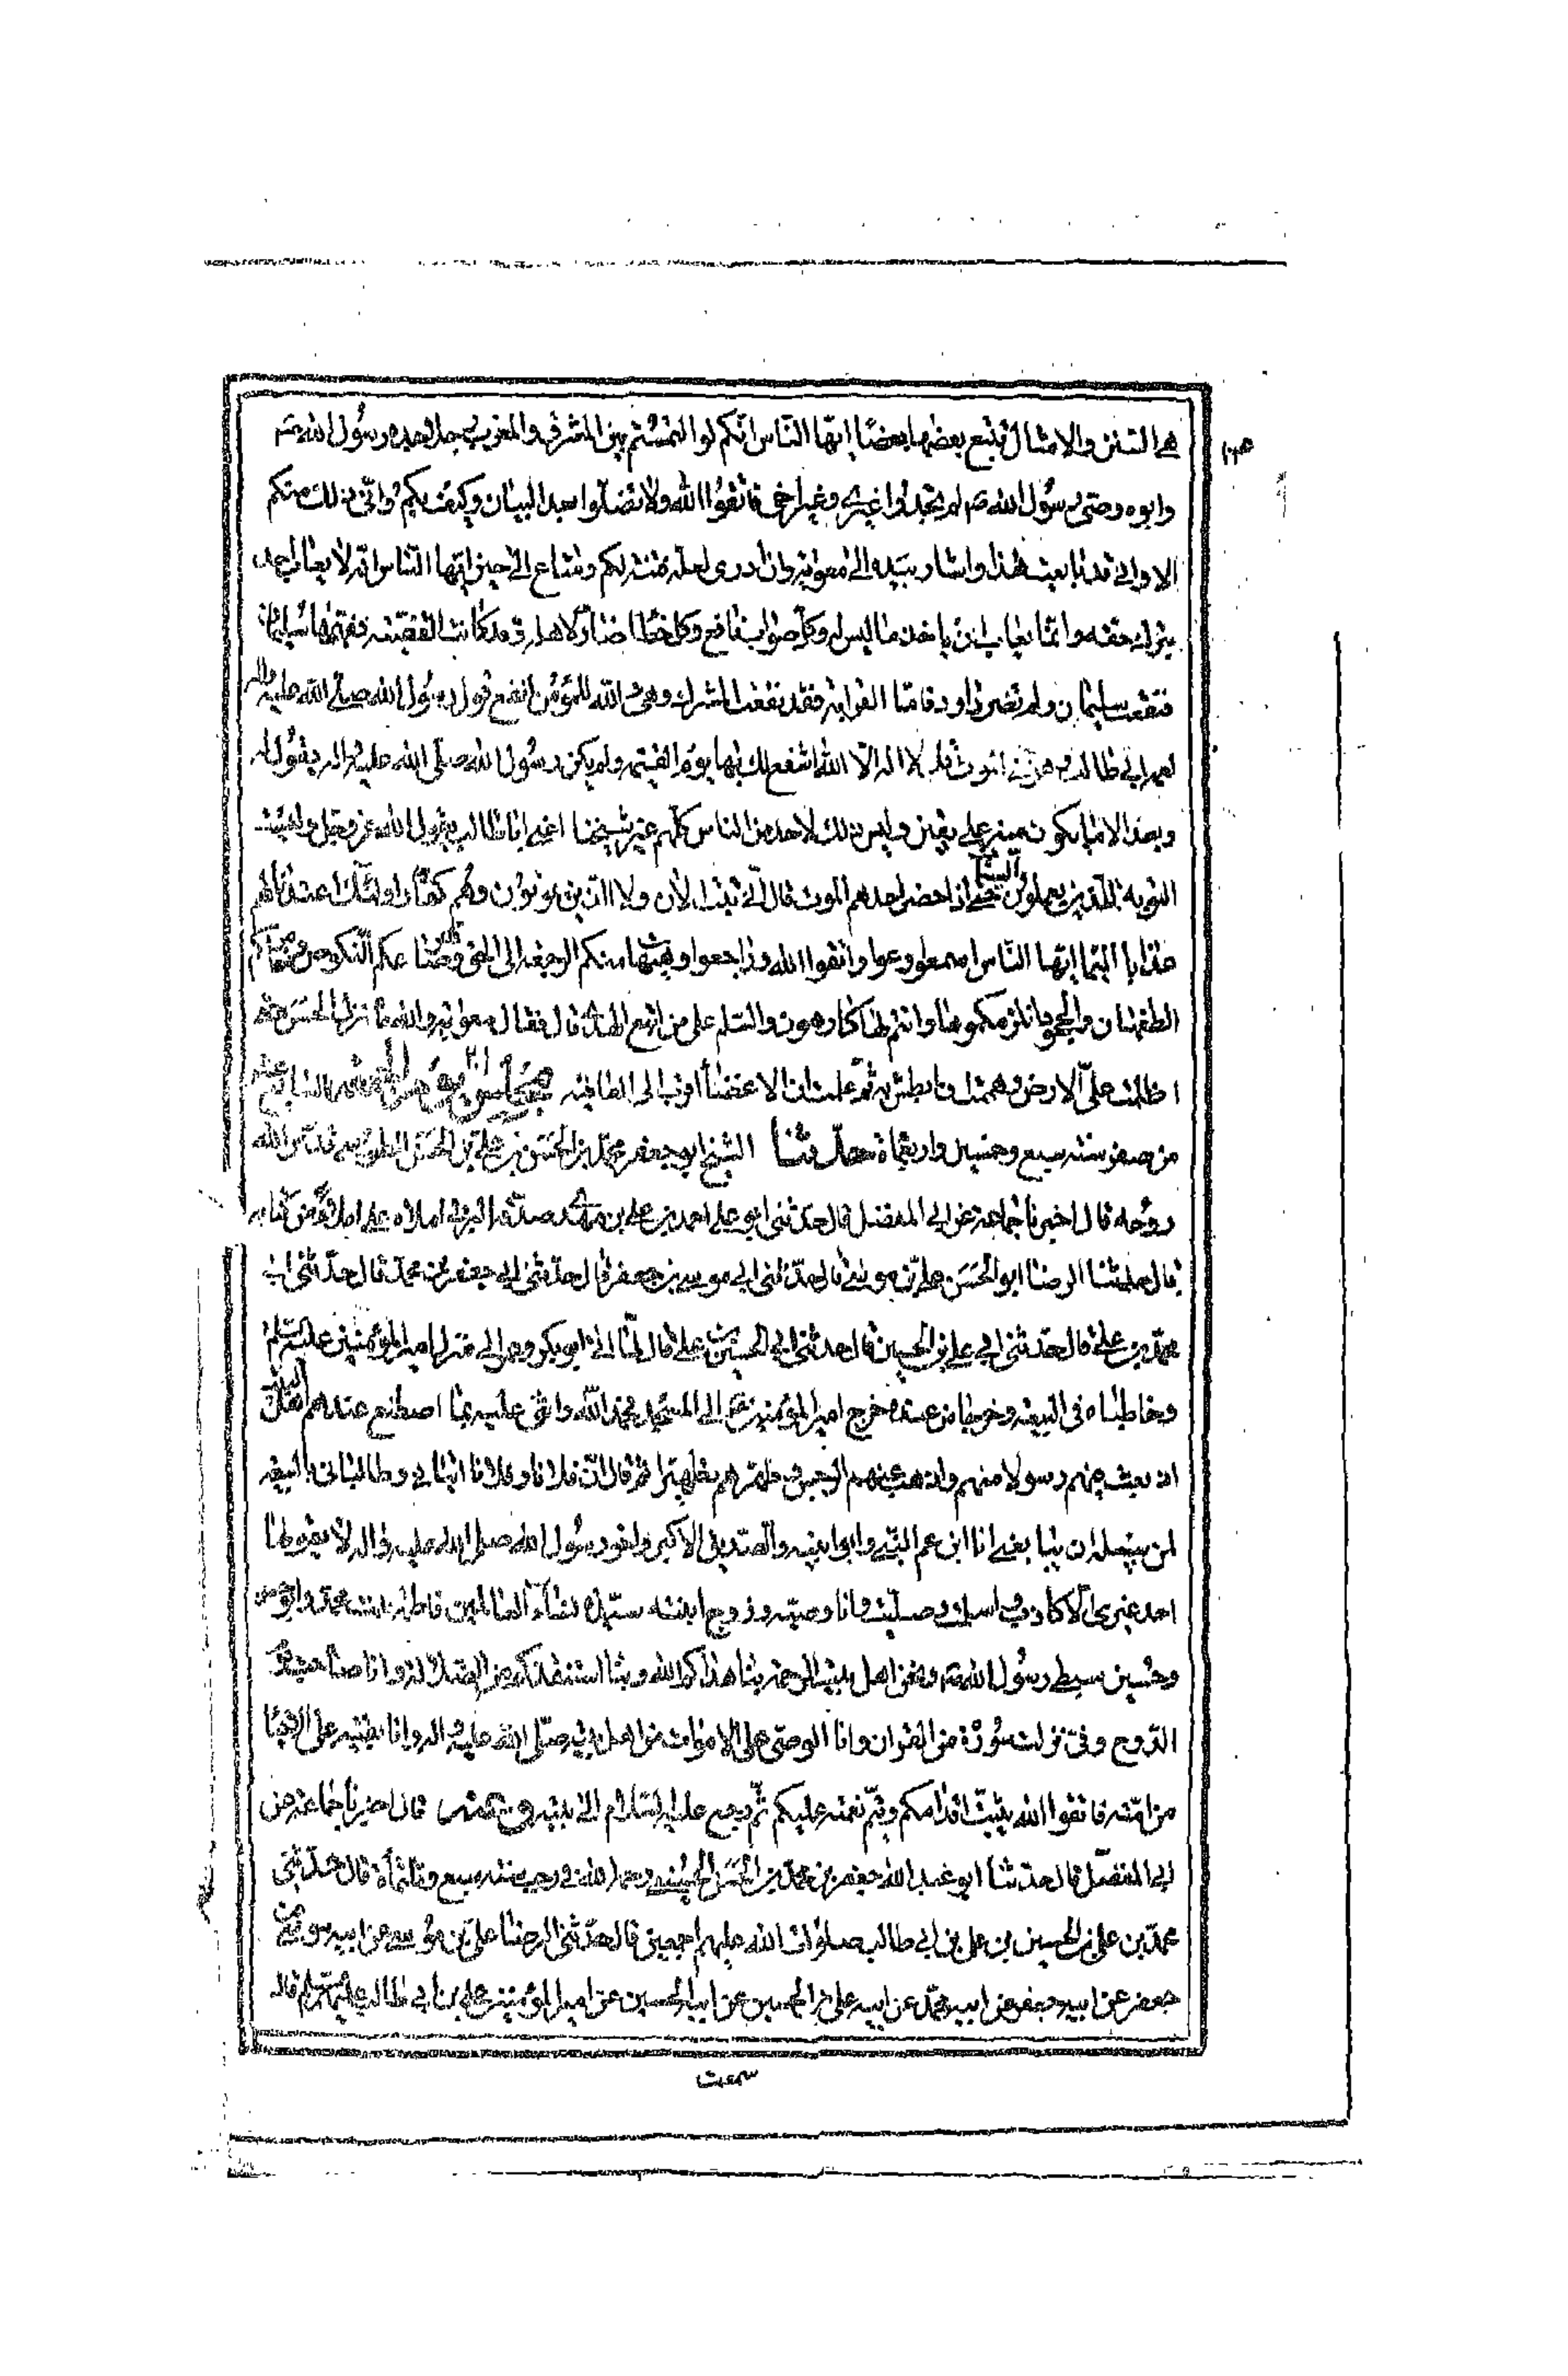 هي السنن والامثال تتبع بعضها بعضًا ايّها النّاس انّكم لو التمستم بين المشرق والمغرب رجلا جده رسول الله ص
وابوه وصيّ رسول الله ص لم تجدوا غيري وغير اخي فاتقوا الله ولا تضلّوا بعد البيان وكيف بكم وانّى ذلك منكم
الا واني قد بايعت هذا واشار بيده الى معوية وان ادري لعله فتنة لكم ومتاع الى حين ايّها النّاس انّه لا يعاب احد
بترك حقه وانّما يعاب ان ياخذ ما ليس له وكل صواب نافع وكل خطا ضارّ لاهله وقد كانت القضيّة ففهمها سليمان
فنفعت سليمان ولم تضر داود فامّا القرابة فقد نفعت المشرك وهي والله للمؤمن انفع قول رسول الله صلى الله عليه واله
لعمه ابي طالب وهو في الموت قل لا اله الّا الله اشفع لك بها يوم القيمة ولم يكن رسول الله صلّى الله عليه واله يقول له
ويعد الا ما يكون منه على يقين وليس ذلك لاحد من الناس كلّهم غير شيخنا اعني ابا طالب يقول الله عز وجل وليست
التوبة للذين يعملون السيئات حتى اذا حضر احدهم الموت قال انّي تبت الآن ولا الذين يموتون وهم كفّار اولئك اعتدنا لهم
عذابا اليما ايّها النّاس اسمعوا وعوا واتقوا الله وراجعوا وهيهات منكم الرجعة الى الحق وقد صارعكم النكوص وخامركم
الطغيان والجحود انلزمكموها وانتم لها كارهون والسّلم على من اتبع الهدى قال فقال معوية والله ما نزل الحسن حتى
اظلمت عليّ الارض وهممت ان ابطش به ثمّ علمت ان الاغضاء اقرب الى العافية مجلس يوم الجمعة السابع عشر
من صفر سنة سبع وخمسين واربعمائة حدّثنا الشيخ ابو جعفر محمّد بن الحسن بن علي بن الحسن الطوسي قدّس الله
روحه قال اخبرنا جماعة عن ابي المفضل قال حدّثني ابو علي احمد بن علي بن مهدي صدقة البرقي املاه علي املاء من كتابه
قال حدثنا الرضا ابو الحسن علي بن موسى قال حدّثني ابي موسى بن جعفر قال حدّثني ابي جعفر بن محمّد قال حدّثني ابي
محمّد بن علي قال حدّثني ابي علي بن الحسين قال حدثني ابي الحسين بن علي قال لمّا اتى ابو بكر وعمر الى منزل امير المؤمنين عليه السّلم
وخاطباه في البيعة وخرجا من عنده خرج امير المؤمنين ع الى المسجد فحمد الله واثنى عليه بما اصطنع عندهم اهل البيت
اذ بعث فيهم رسولا منهم واذهب عنهم الرجس وطهرهم تطهيرا ثم قال انّ فلانا وفلانا اتياني وطالباني بالبيعة
لمن سبيله ان يبايعني انا ابن عم النبي وابو ابنيه والصّديق الاكبر واخو رسول الله صلى الله عليه واله لا يقولها
احد غيري الّا كاذب واسلمت وصلّيت وانا وصيّه وزوج ابنته سيّدة نساء العالمين فاطمة بنت محمّد وابو حسن
وحسين سبطي رسول الله ص ونحن اهل بيت الرحمة بنا هداكم الله وبنا استنقذكم من الضلالة وانا صاحب يوم
الدّوح وفيّ نزلت سورة من القرآن وانا الوصيّ على الاموات من اهل بيته صلّى الله عليه واله وانا بقيته على الاحياء
من امّته فاتقوا الله يثبّت اقدامكم ويتمّ نعمته عليكم ثمّ رجع عليه السّلام الى بيته قال اخبرنا جماعة عن
ابي المفضّل قال حدثنا ابو عبد الله جعفر بن محمّد بن الحسن الحسيني رحمه الله في رجب سنة سبع وثلثمائة قال حدّثني
محمّد بن علي بن الحسين بن علي بن ابي طالب صلوات الله عليهم اجمعين قال حدّثني الرضا علي بن موسى عن ابيه موسى بن
جعفر عن ابيه جعفر عن ابيه محمّد عن ابيه علي بن الحسين عن ابيه الحسين عن امير المؤمنين علي بن ابي طالب عليهم السّلم قال
سمعت